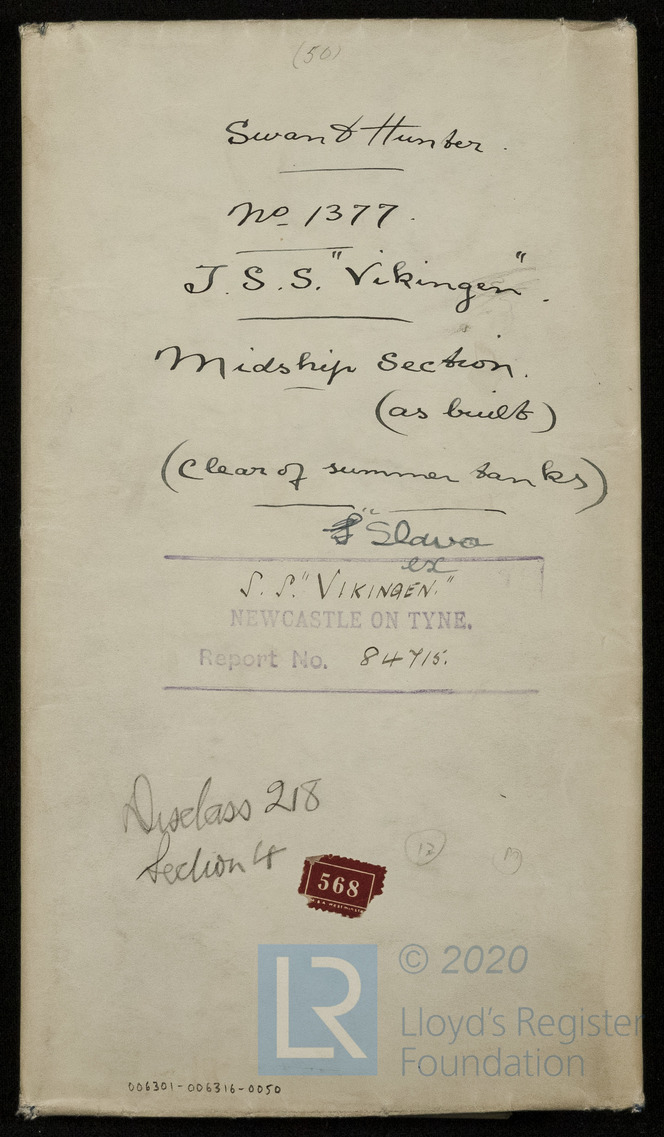 (50)
Swan & Hunter.
No 1377.
T.S.S. "Vikingen".
Midship Section.
(as built)
(clear of summer tanks)
"Slava
ex
S.S. "VIKINGEN."
NEWCASTLE ON TYNE.
Report No. 84715.
Disclass 218
Section 4
12
568
LR
© 2020
Lloyd's Register
Foundation
006301-006316-0050